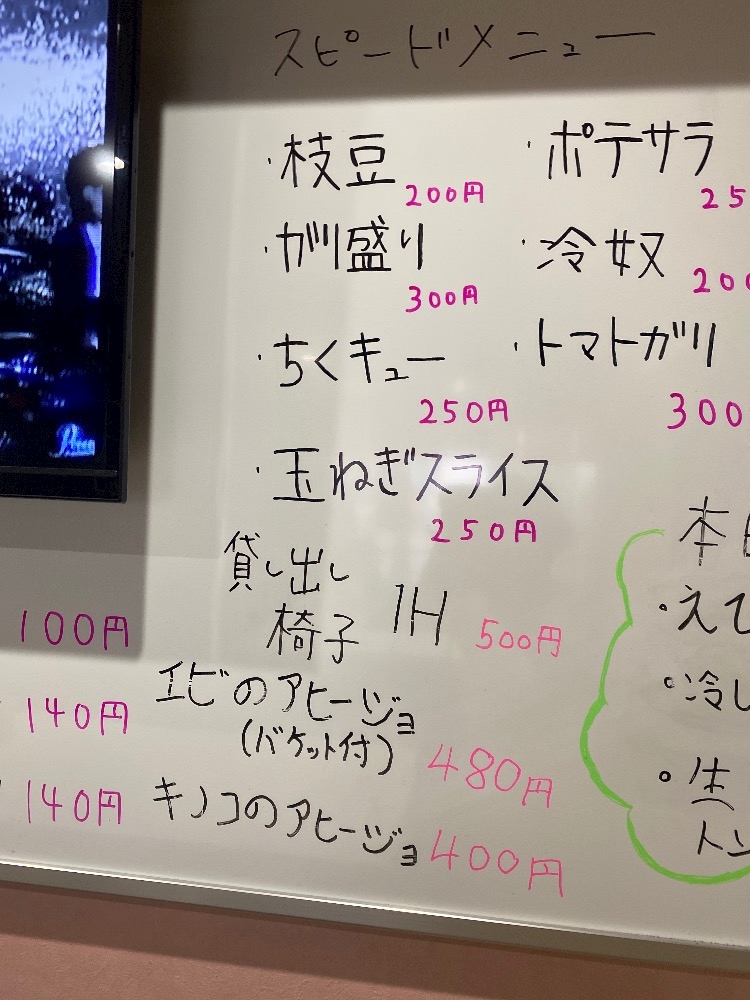 スピードメニュー
・枝豆 200円
・ポテサラ 25
・ガリ盛り 300円
・冷奴 200
・ちくキュー 250円
・トマトガリ 300
・玉ねぎスライス 250円
貸し出し
椅子 1H 500円
エビのアヒージョ
(バケット付) 480円
キノコのアヒージョ 400円
100円
140円
140円
本日
・えて
・冷し
・生
トン